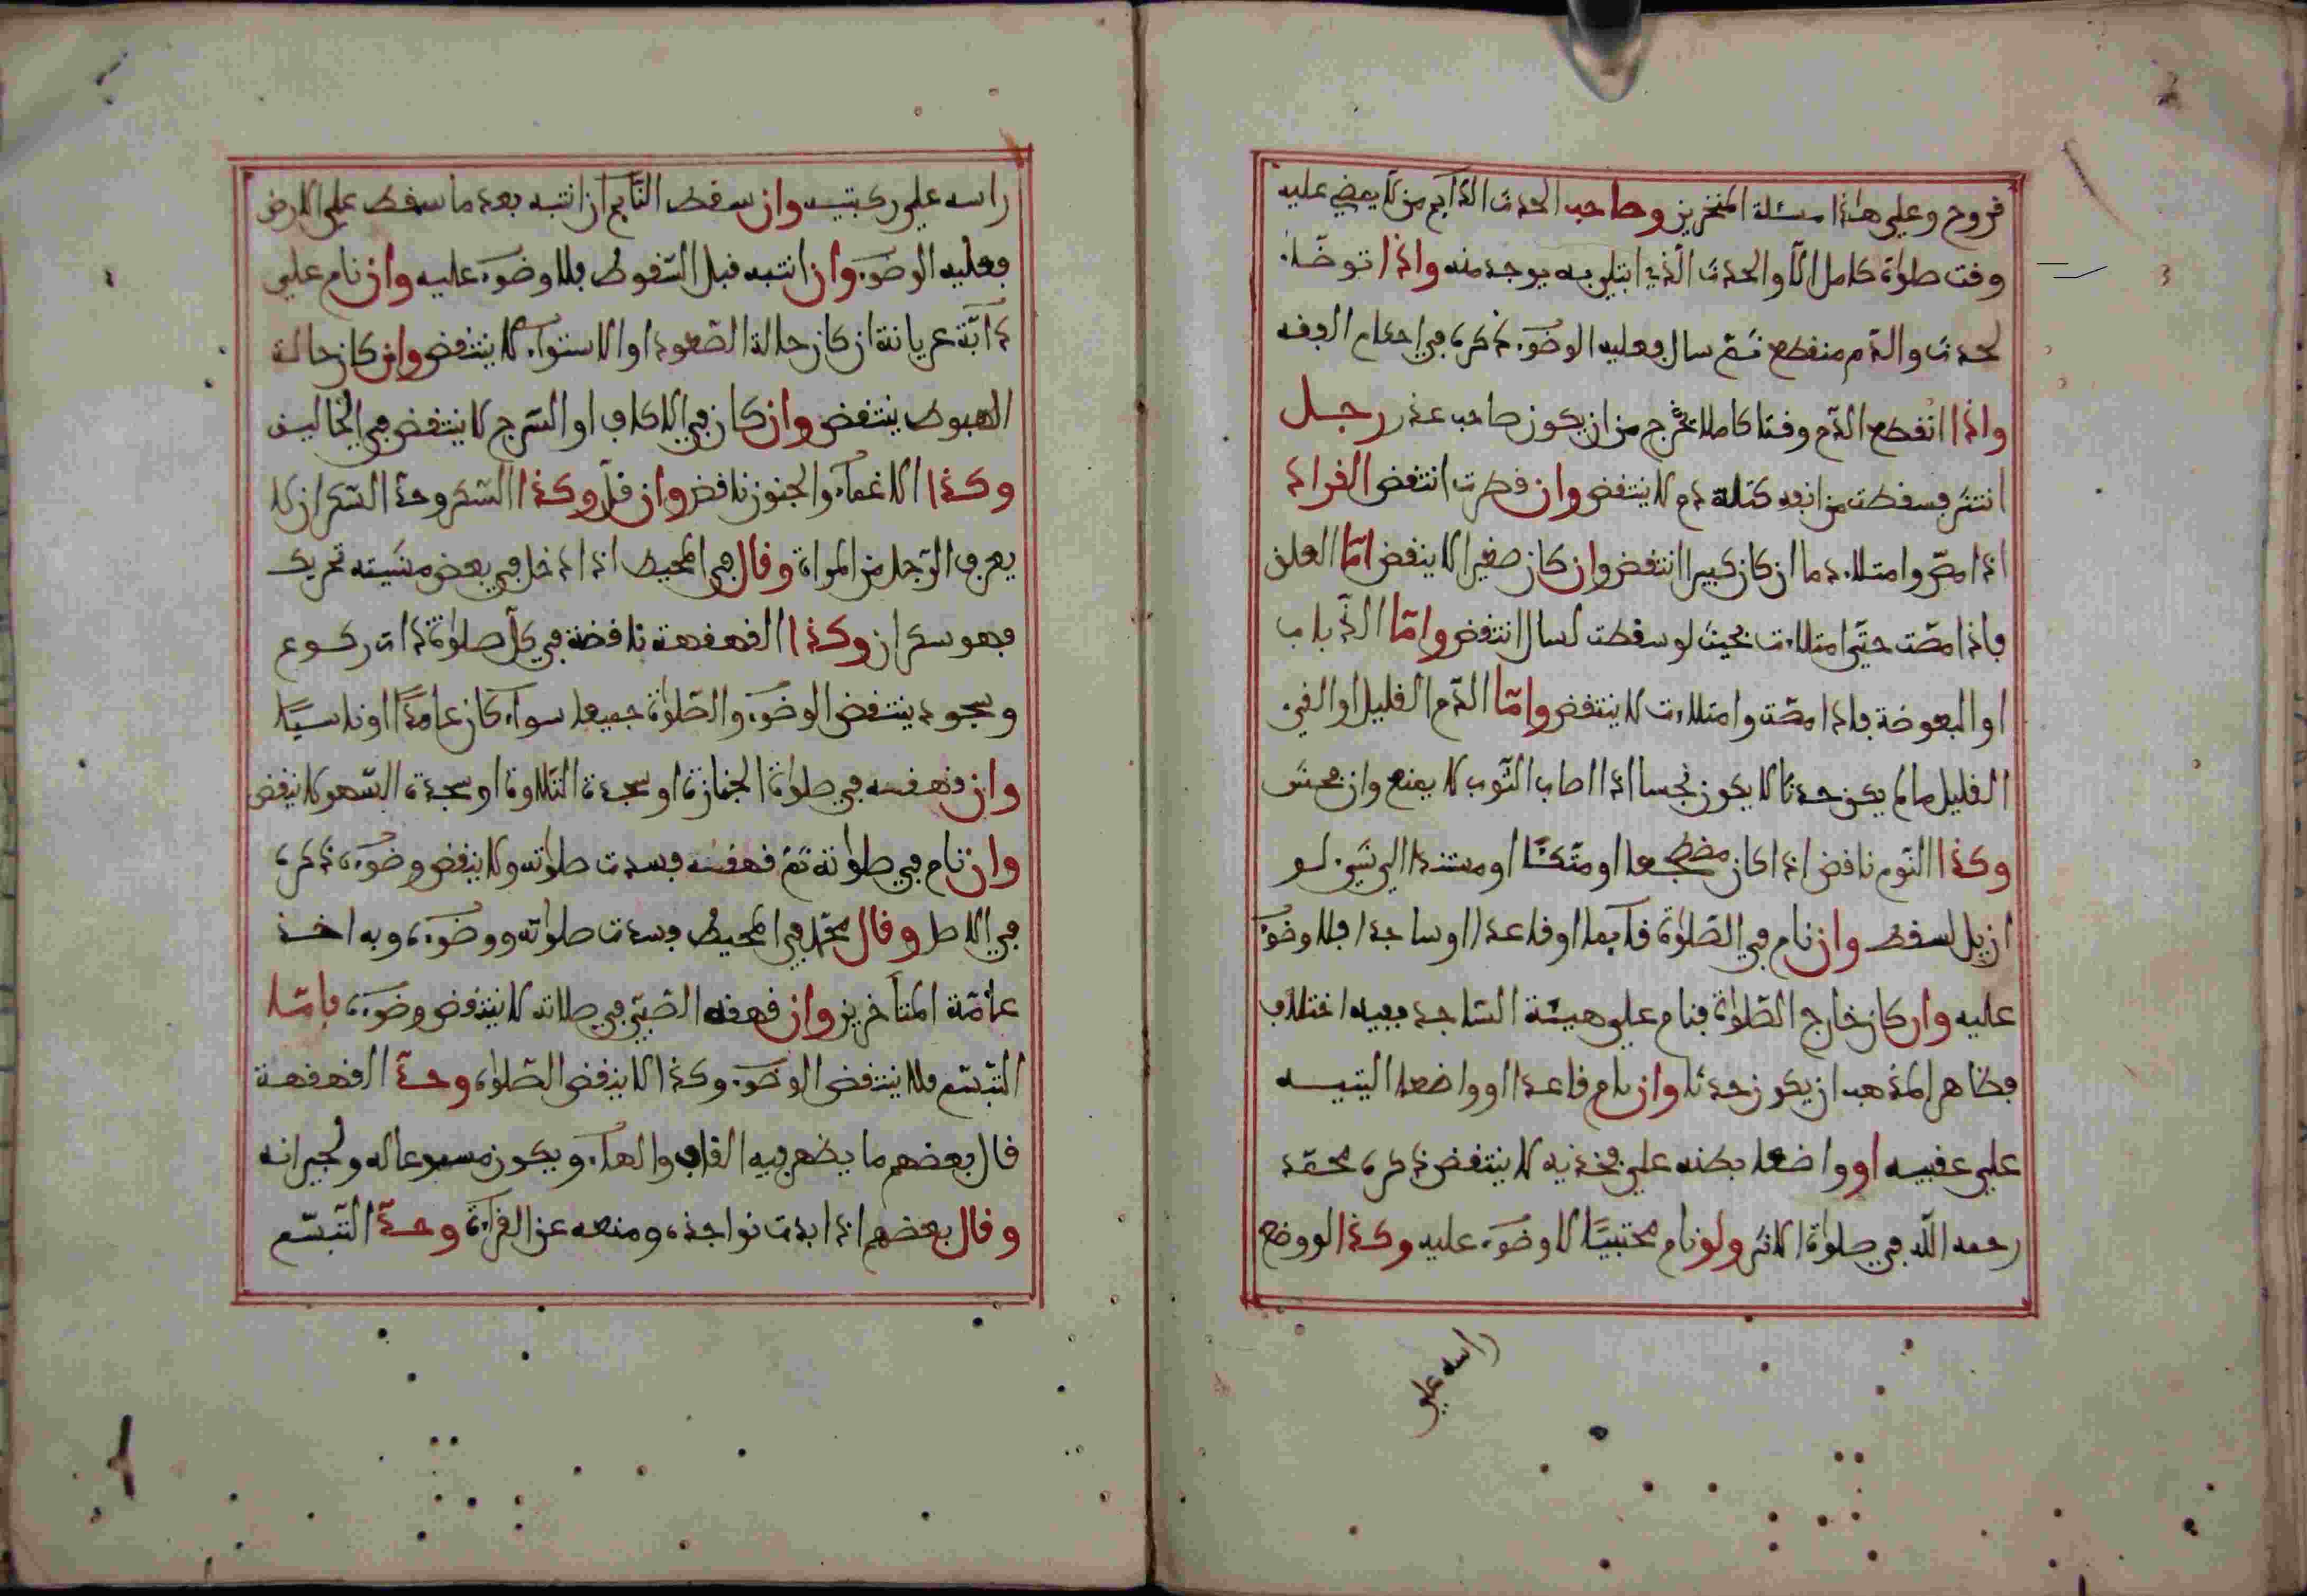 قروح وعلى هاذا مسئلة المنخرين وصاحب الحدث الدّآيم من لا يمضي عليه
وقت صلوٰة كامل الّا والحدث الّذي ابتلي به يوجد منه واذا توضّا
لحدث والدّم منقطع ثمّ سال فعليه الوضوء ذكره في احكام الفقه
واذا انقطع الدّم وقتا كاملا يخرج من ان يكون صاحب عذر رجل
انتثر فسقطت من انفه كتلة دم لا ينتقض وان قطرت انتقض القراد
اذا مصّ وامتلاء دما ان كان كبيرا انتقض وان كان صغيرا لا ينقض امّا العلق
فاذا مصّت حتّى امتلاءت بحيث لو سقطت لسال انتقض وامّا الذّباب
او البعوضة فاذا مصّت وامتلاءت لا ينتقض وامّا الدّم القليل او القيء
القليل ما لم يكن حدثا لا يكون نجسا اذا اصاب الثّوب لا يمنع وان فحش
وكذا النّوم ناقض اذا كان مضطجعا او متّكئا او مستندا الى شيء لو
ازيل لسقط وان نام في الصّلوٰة قآيما او قاعدا او ساجدا فلا وضوء
عليه وان كان خارج الصّلوٰة فنام على هيئة السّاجد ففيه اختلاف
فظاهر المذهب ان يكون حدثا وان نام قاعدا او واضعا اليتيه
على عقبيه او واضعا بطنه على فخذيه لا ينتقض ذكره محمّد
رحمه اللّه في صلوٰة الاثر ولو نام محتبيًا لا وضوء عليه وكذا لو وضع
راسه على
راسه على ركبتيه وان سقط النّآيم ان انتبه بعد ما سقط على الارض
فعليه الوضوء وان انتبه قبل السّقوط فلا وضوء عليه وان نام على
دابّة عريانة ان كان حالة الصّعود او الاستوآء لا ينتقض وان كان حالة
الهبوط ينتقض وان كان في الاكاف او السّرج لا ينتقض في الحالين
وكذا الاغمآء والجنون ناقض وان قلّ وكذا السّكر وحدّ السّكران لا
يعرف الرّجل من المراة وقال في المحيط اذا دخل في بعض مشيته تحريك
فهو سكران وكذا القهقهة ناقضة في كلّ صلوٰة ذات ركوع
وسجود ينتقض الوضوء والصّلوٰة جميعا سوآء كان عامدًا او ناسيًا
وان قهقه في صلوٰة الجنازة او سجدة التّلاوة او سجدة السّهو لا ينقض
وان نام في صلوٰته ثمّ قهقه فسدت صلوٰته ولا ينقض وضوءه ذكره
في الاصل وقال محمّد في المحيط فسدت صلوٰته ووضوءه وبه اخذ
عامّة المتاخرين وان قهقه الصّبيّ في صلاته لا ينتقض وضوءه فامّا
التّبسّم فلا ينتقض الوضوء وكذا لا ينقض الصّلوٰة وحدّ القهقهة
قال بعضهم ما يظهر فيه القاف والهاء ويكون مسموعا له ولجيرانه
وقال بعضهم اذا بدت نواجذه ومنعه عن القرآءة وحدّ التّبسّم